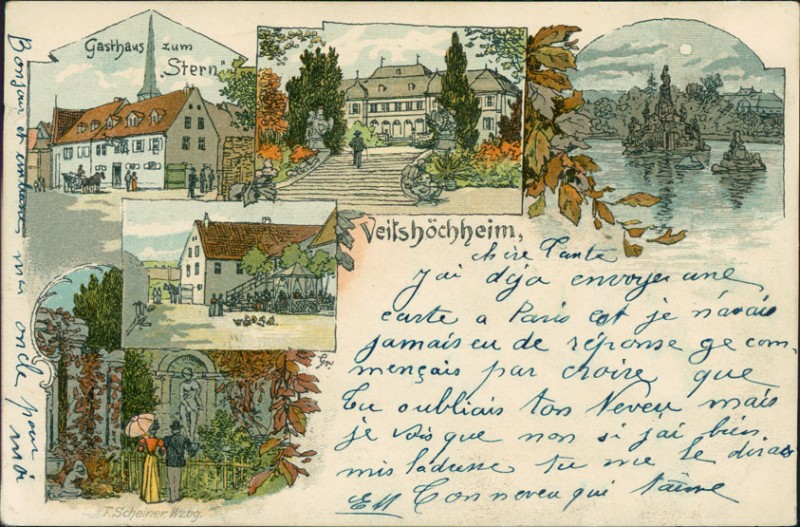 Gasthaus zum
"Stern"
Veitshöchheim,
chère Tante
j'ai déja envoyer une
carte a Paris est je n'avais
jamais eu de réponse ge com-
mençais par croire que
tu oubliais ton Neveu mais
je vois que non si j'ai bien
mis l'adresse tu me le diras
Ton neveu qui t'aime
Bonjour et embrasse mon oncle pour
moi
F. Scheiner, Wzbg.